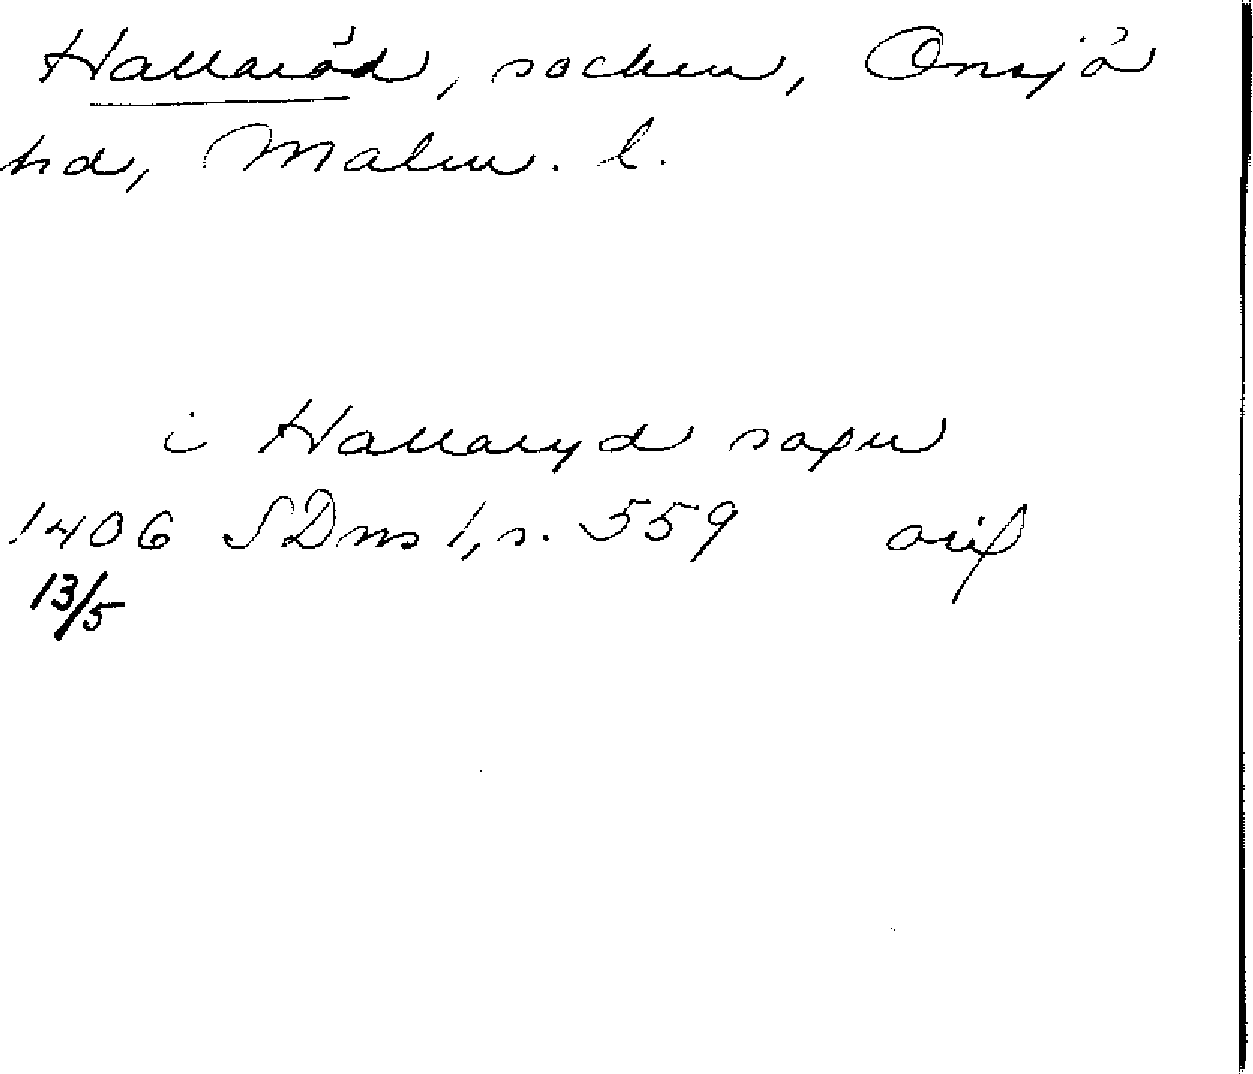 Hallaröd, socken, Onsjö
hd, Malm. l.
i Hallaryd soghn
1406 SDns 1, s. 559 orig
13/5